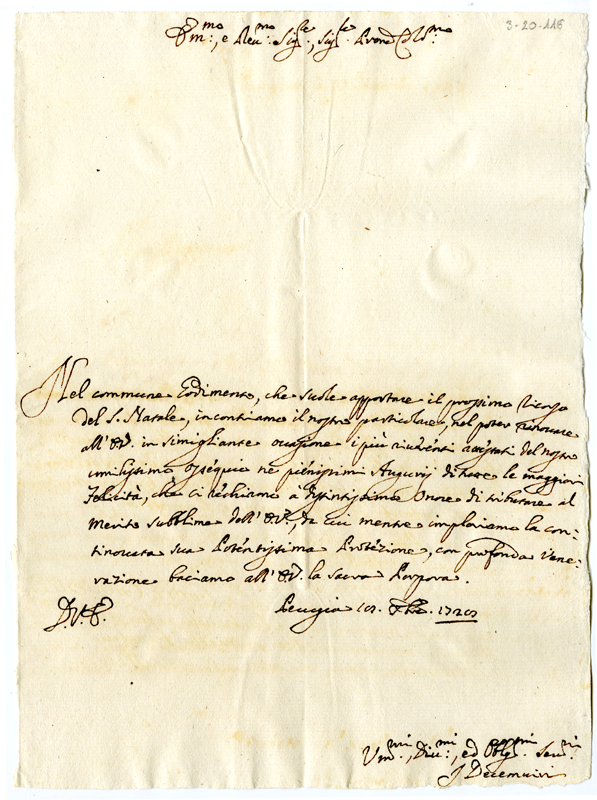 3-20-116
Em:mo, e Reu:mo Sig:re, Sig:re Prone Col:mo
Nel commune Godimento, che suole apportare il prossimo ricorso
del S. Natale, incontriamo il nostro particolare, nel poter rinouare
all'E.V. in simigliante occasione i più riuerenti attestati del nostro
umilissimo Ossequio ne pienissimi Augurij di tutte le maggiori
Felicità, che ci rechiamo à distintissimo Onore di tributare al
Merito subblime dell'E.V., da cui mentre imploriamo la con-
tinouata sua Potentissima Protezione, con profonda Vene-
razione baciamo all'E.V. la sacra Porpora.
D.V.E. Perugia Xbre. 1720
Um:mi, Diu:mi, ed Obbg:mi Seru:ri
J Decemuiri